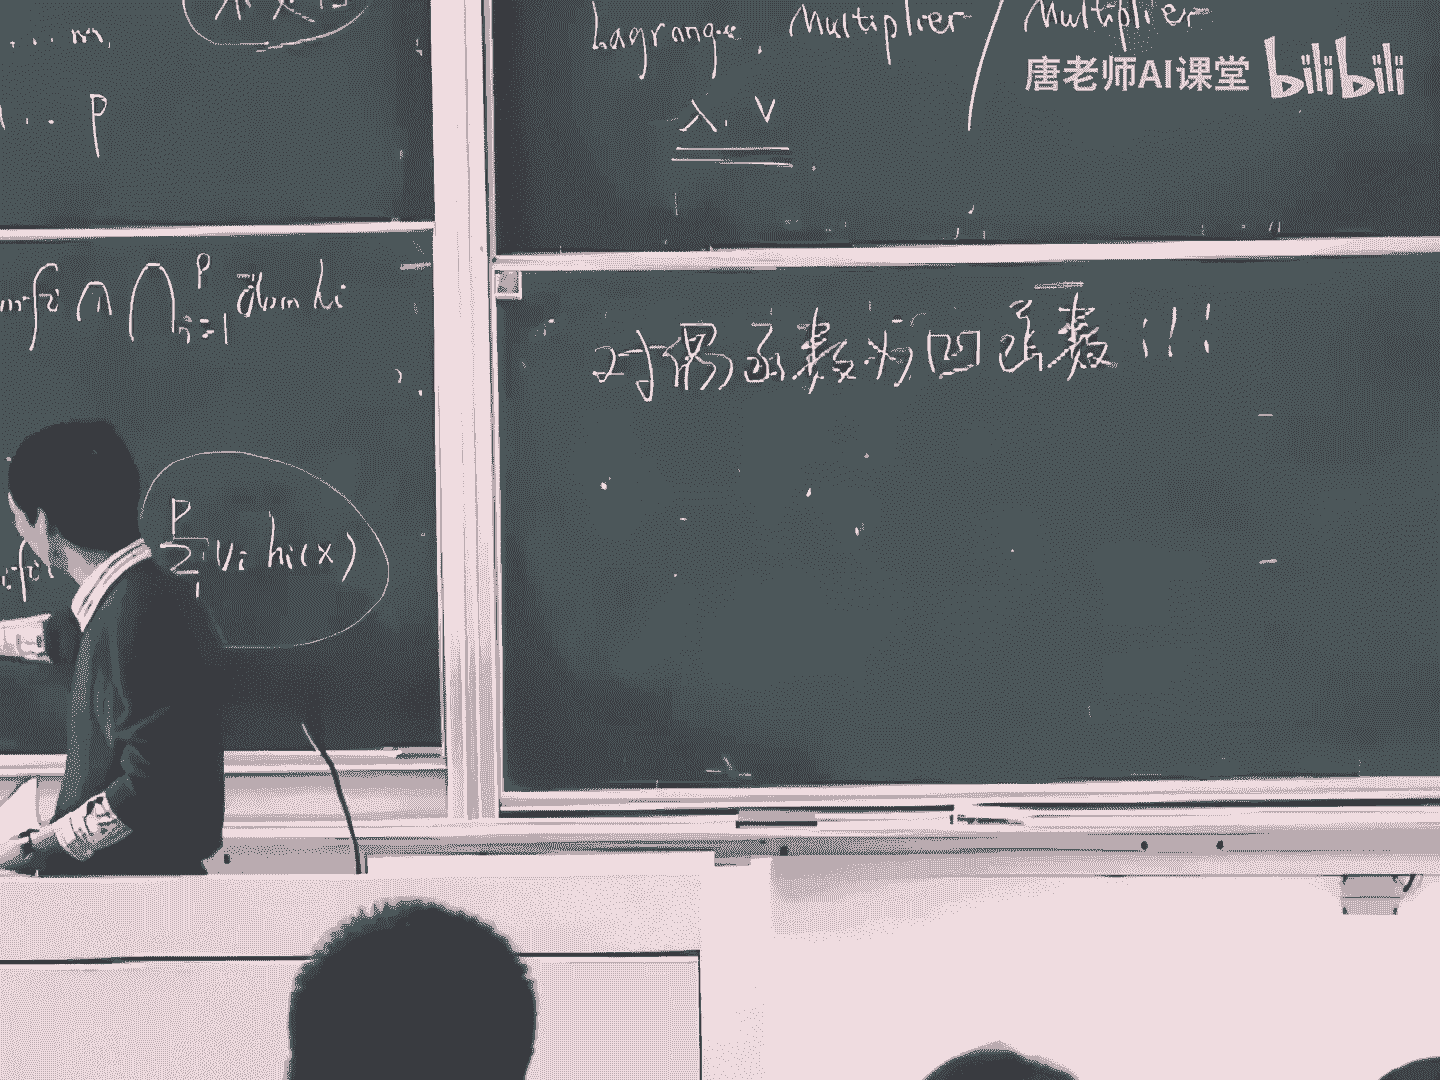 ... m,
... p
mfi ∩ ⋂ᵢ₌₁ᵖ dom hi
P
Σ νi hi(x)
i
Lagrange Multiplier / Multiplier
λ, ν
唐老师AI课堂 bilibili
对偶函数为凹函数!!!